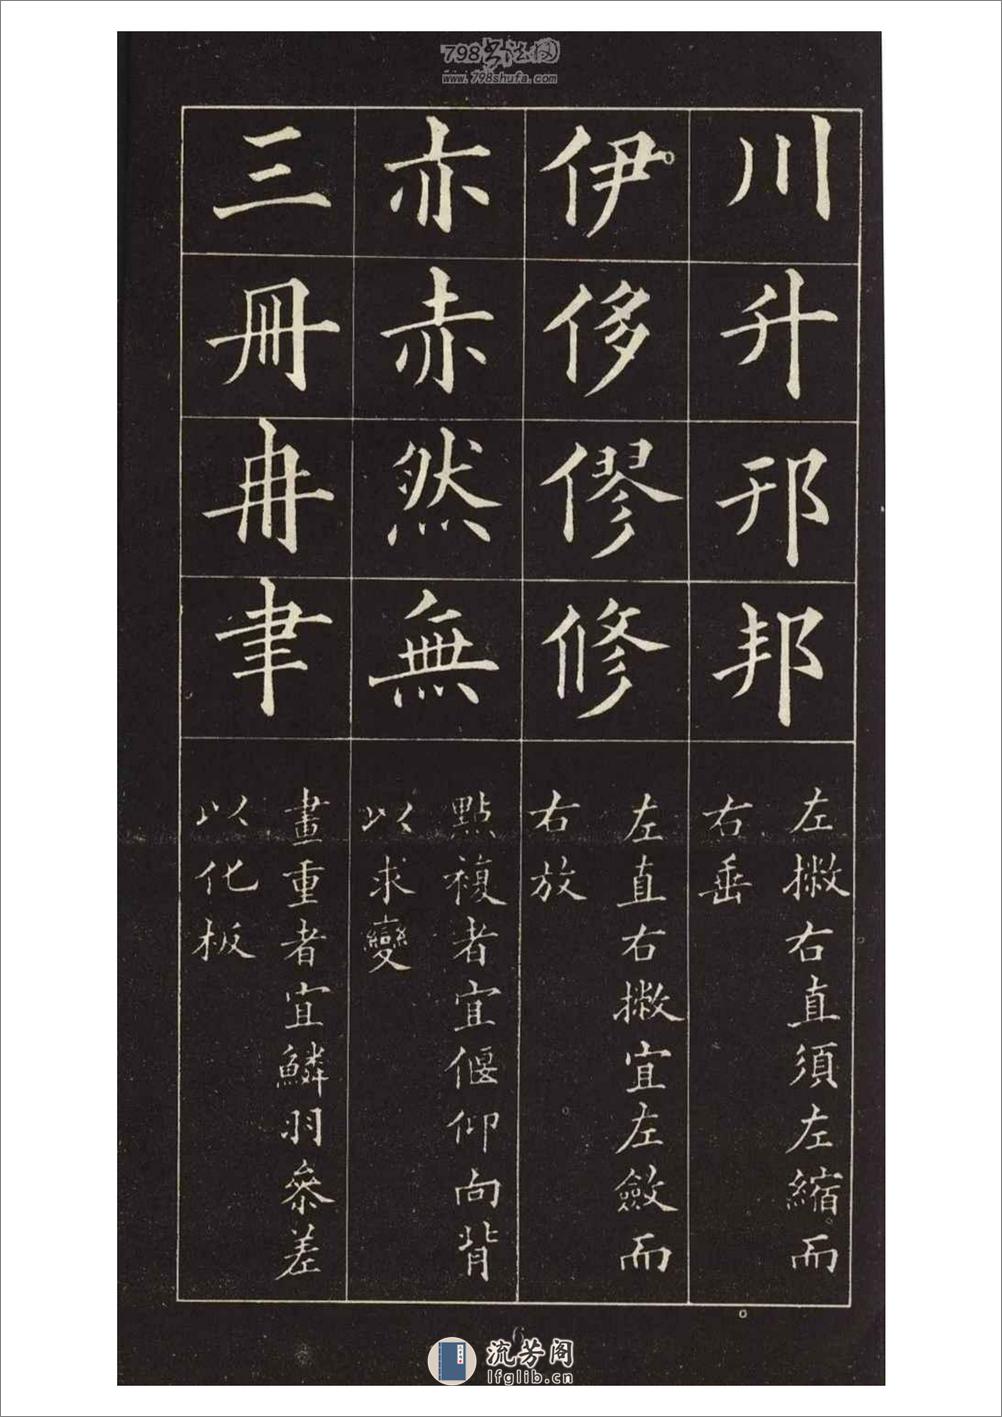 798书法网
www.798shufa.com
川升邦邦
左撇右直須左縮而
右垂
伊侈僇修
左直右撇宜左斂而
右放
亦赤然無
點複者宜偃仰向背
以求變
三冊冉聿
畫重者宜鱗羽參差
以化板
流芳阁
lfglib.cn